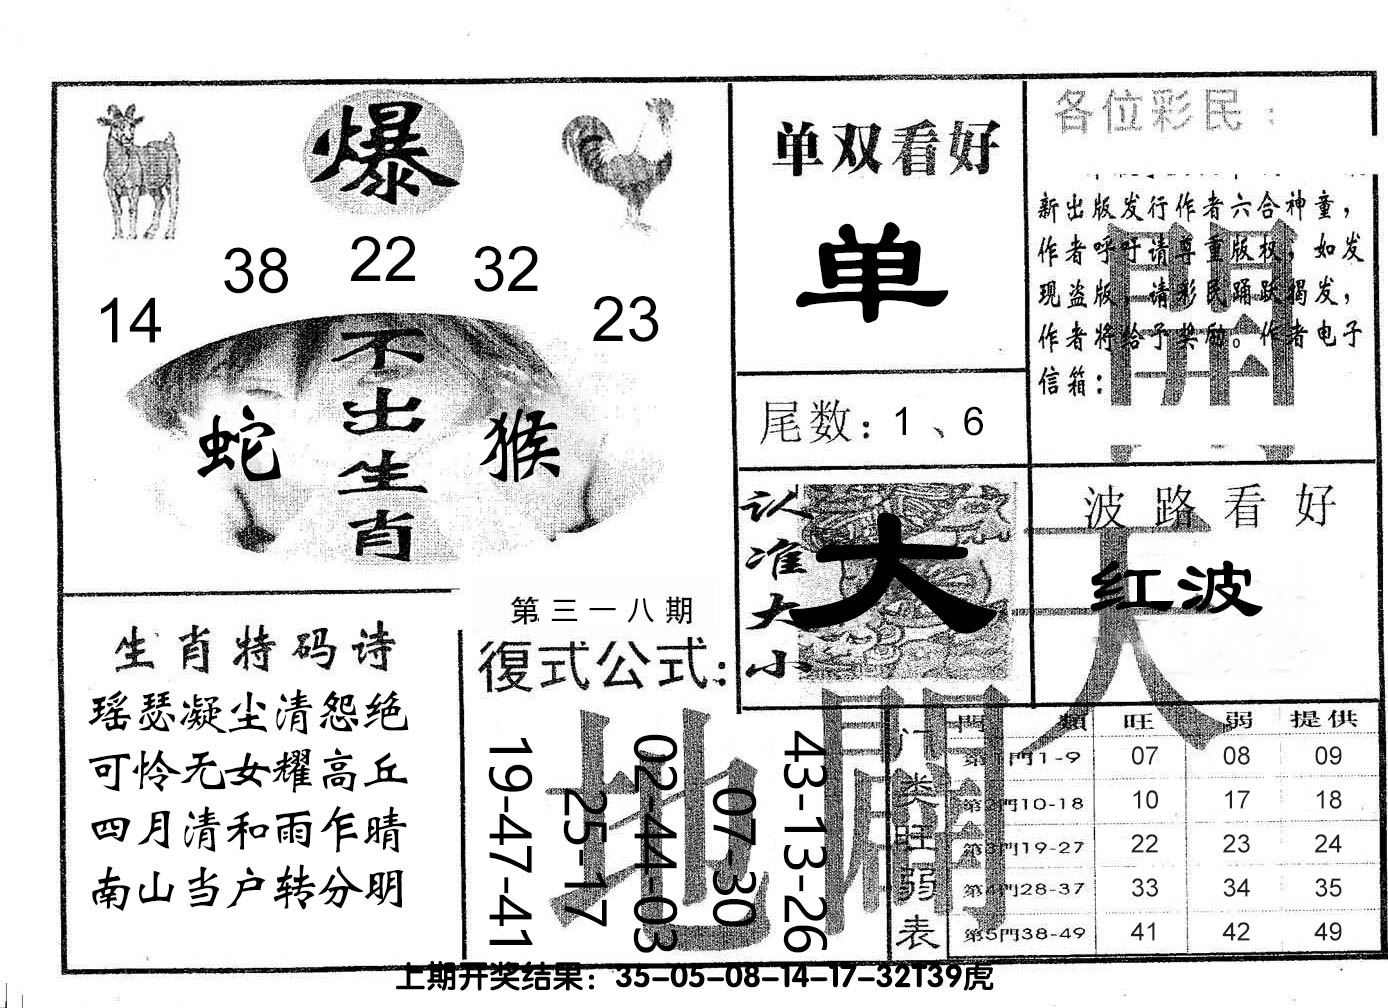 爆
38 22 32
14 23
不出生肖
蛇 猴
单双看好
单
尾数：1、6
各位彩民：
新出版发行作者六合神童，
作者呼吁请尊重版权，如发
现盗版，请彩民踊跃揭发，
作者将给予奖励。作者电子
信箱：
认准大小
大
波路看好
红波
生肖特码诗
瑶瑟凝尘清怨绝
可怜无女耀高丘
四月清和雨乍晴
南山当户转分明
第三一八期
復式公式：
19-47-41
25-17
02-44-03
07-30
43-13-26
天
地
門类旺弱表
門類 旺 弱 提供
第1門1-9 07 08 09
第2門10-18 10 17 18
第3門19-27 22 23 24
第4門28-37 33 34 35
第5門38-49 41 42 49
上期开奖结果：35-05-08-14-17-32T39虎